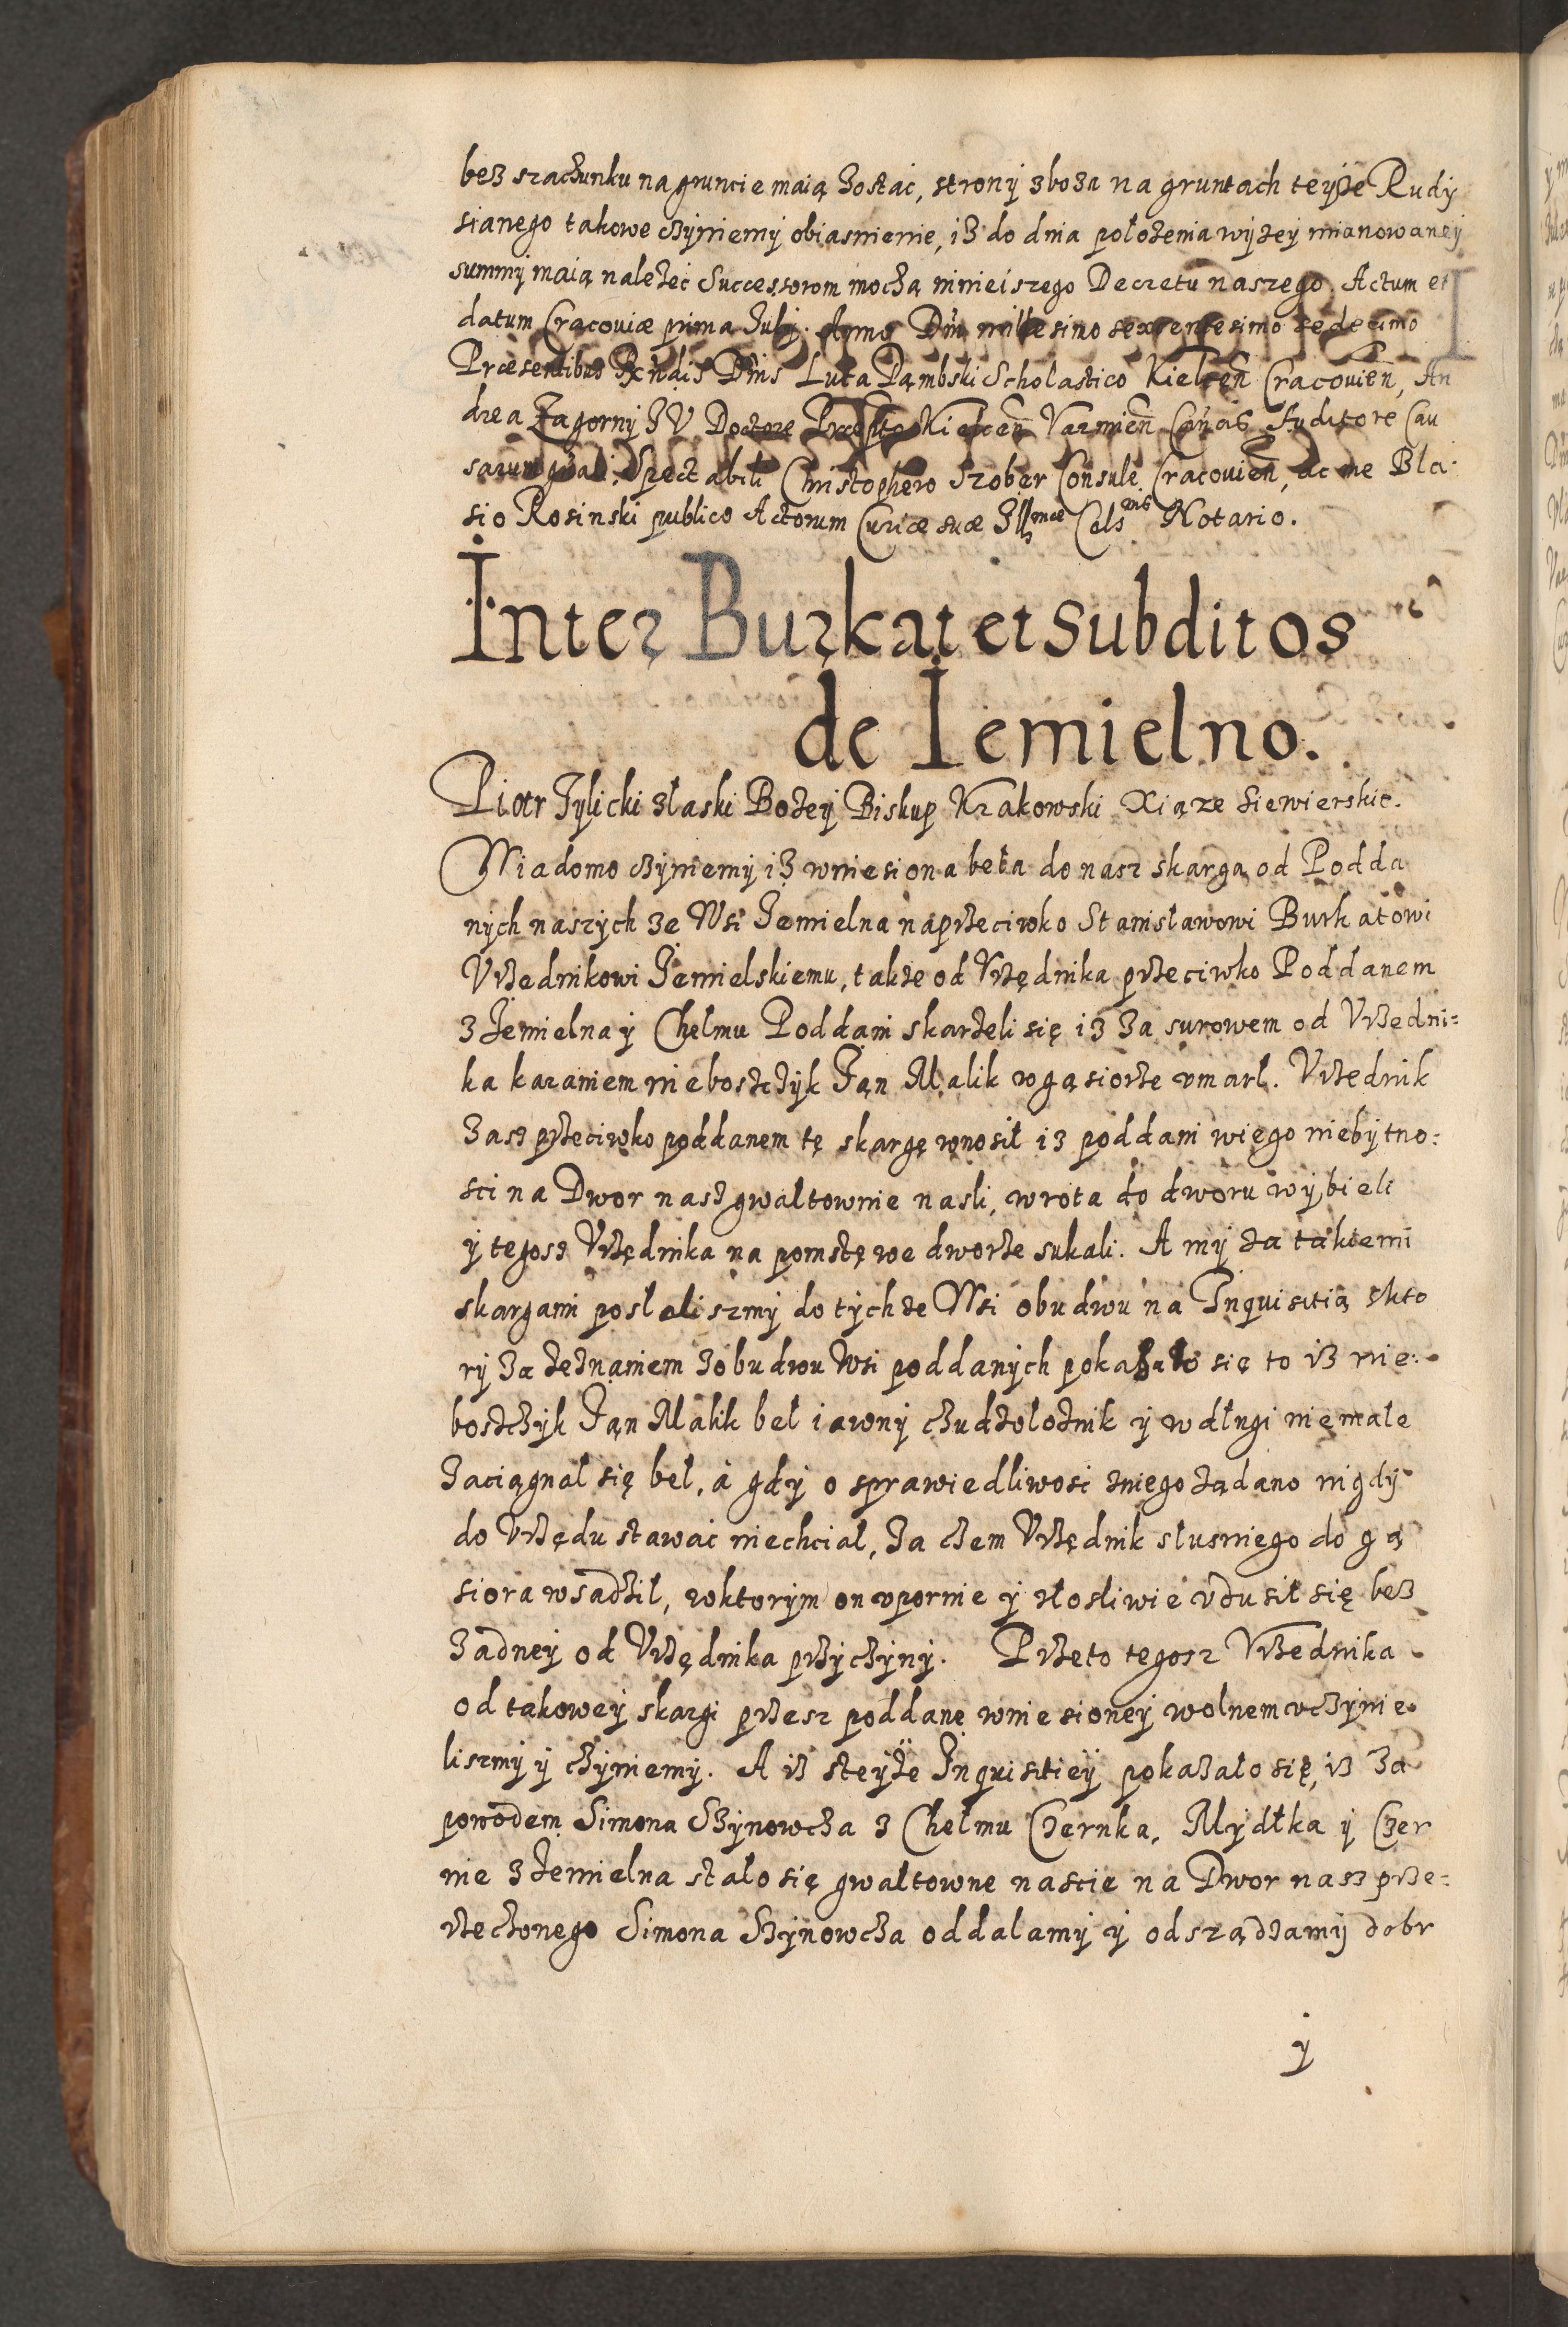 bez szachunku na gruncie maią zostac, strony zboza na gruntach teyze Rudy
sianego takowe czyniemy obiasnienie, iz do dnia położenia wyzey mianowaney
summy maią nalezec Successorom mocza ninieiszego Decretu naszego. Actum et
datum Cracoviæ prima July. Anno Dñi millesimo sexcentesimo sedecimo
Præsentibus Rñdis Dñis Luca Dąmbski Scholastico Kielceñ Cracovieñ, An
drea Zagorny I V Doctore Kielceñ Varmieñ Cañcis Auditore Cau
sarum gñali, Spectabili Christophero Szober Consule Cracovieñ, ac me Bla
sio Rosinski publico Actorum Curiæ suæ Illmæ Celsnis Notario.
Inter Burkat et Subditos
de Iemielno.
Piotr Tylicki z łaski Bozey Biskup Krakowski Xiąze Siewierskie.
Wiadomo czyniemy iz wniesiona beła do nasz skarga od Podda
nych naszych ze Wsi Jemielna naprzeciwko Stanisławowi Burkatowi
Vrzednikowi Jemielskiemu, takze od Vrzędnika przeciwko Poddanem
z Jemielna y Chelmu Poddani skarzeli się iz za surowem od Vrzedni=
ka karaniem nieboszczyk Jan Malik w gąsiorze vmarł. Vrzednik
zasz przeciwko poddanem tę skargę wnosił iz poddani w iego niebytno=
sci na Dwor nasz gwałtownie nasli, wrota do dworu wybieli
y tegosz Vrzędnika na pomstę we dworze sukali. A my za takiemi
skargami posłaliszmy do tychze Wsi obudwu na Inquisitią zkto
ry za zeznaniem z obudwu Wsi poddanych pokazało się to iz nie=
boszczyk Jan Malik beł iawny cudzołoznik y w długi niemałe
zaciągnał się beł, a gdy o sprawiedliwosc z niego ządano nigdy
do Vrzędu stawac niechciał, za czem Vrzędnik słusnie go do gą
siora wsadził, w ktorym on vpornie y złosliwie vdusił się bez
zadney od Vrzędnika przyczyny. Przeto tegosz Vrzednika
od takowey skargi przesz poddane wniesioney wolnem vczynie
liszmy y czyniemy. A iz z teyze Inquisitiey pokazało się, iz za
powodem Simona Szynowcza z Chełmu Czernka, Mydłka y Czer
nie z Jemielna stało się gwałtowne nascie na Dwor nasz prze=
rzeczonego Simona Szynowcza oddalamy y odsządzamy dobr
y